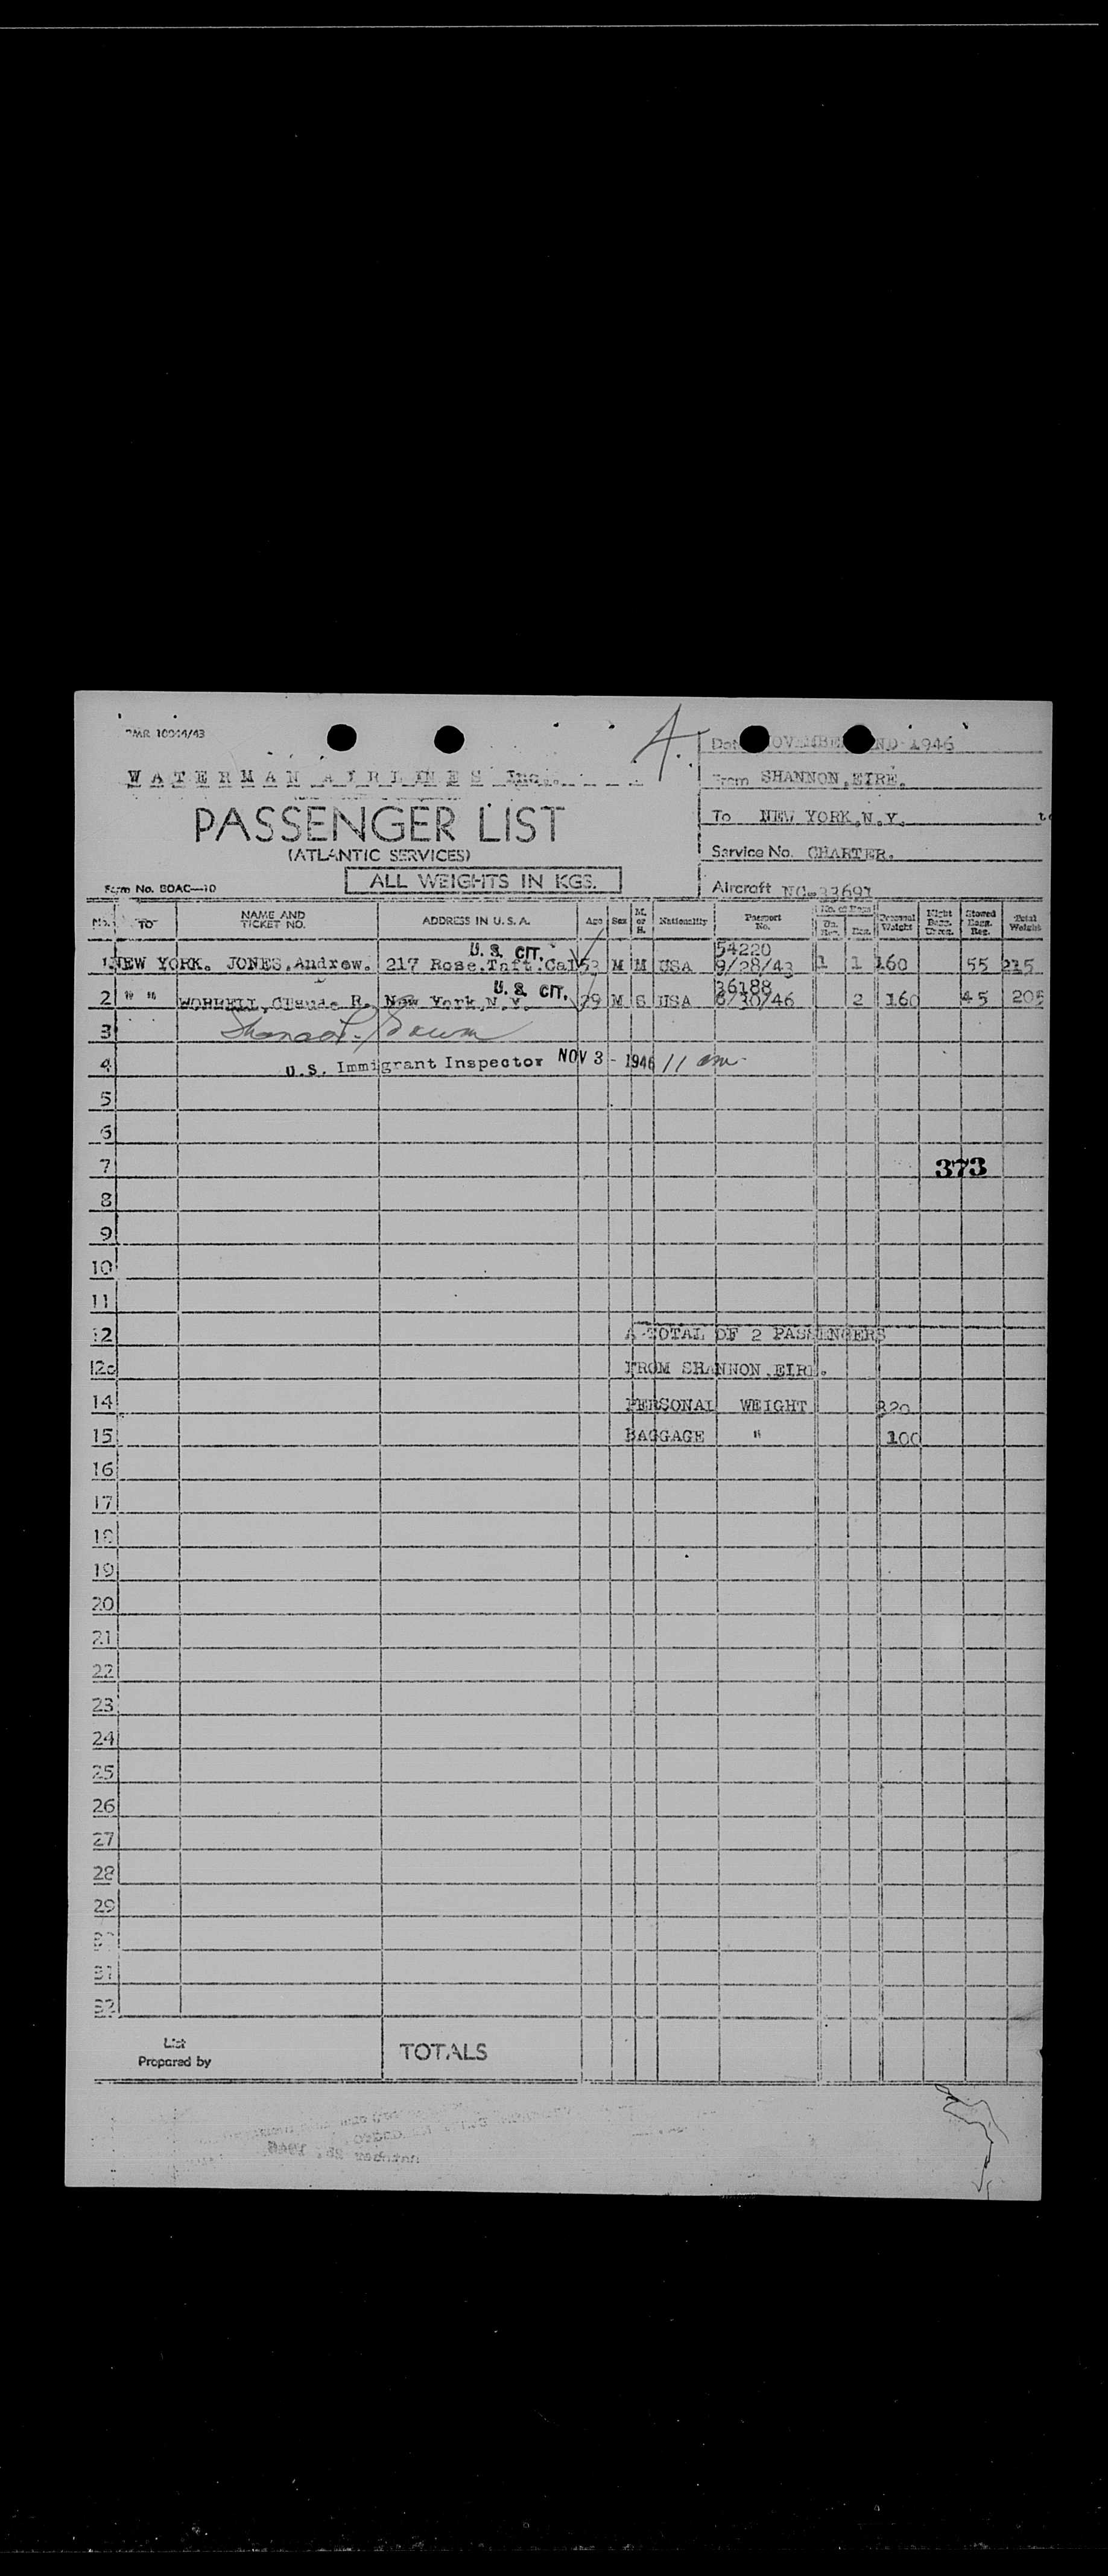 10044/43
4.
NOVEMBER 2ND 1946
WATERMAN AIRLINES Inc.
From SHANNON, EIRE.
PASSENGER LIST
To NEW YORK, N.Y.
(ATLANTIC SERVICES)
Service No. CHARTER.
ALL WEIGHTS IN KGS.
Form No. BOAC—10
Aircraft NC-33697
No. TO NAME AND TICKET NO. ADDRESS IN U.S.A. Age Sex M. or Nationality Passport No. No. of Bags Personal Weight Stowed Bagg. Reg. Total Weight
U. S. CIT. 54220
1 NEW YORK. JONES, Andrew. 217 Rose. Taft. Cal 53 M M USA 9/28/43 1 1 160 55 215
U. S. CIT. 36188
2 " " WORRELL, Claude R. New York, N.Y. 29 M S USA 6/30/46 2 160 45 205
3
4 U.S. Immigrant Inspector NOV 3 - 1946 11 am
5
6
7 373
8
9
10
11
12 A TOTAL OF 2 PASSENGERS
12c FROM SHANNON, EIRE.
14 PERSONAL WEIGHT 320
15 BAGGAGE " 100
16
17
18
19
20
21
22
23
24
25
26
27
28
29
30
31
32
List
Prepared by
TOTALS